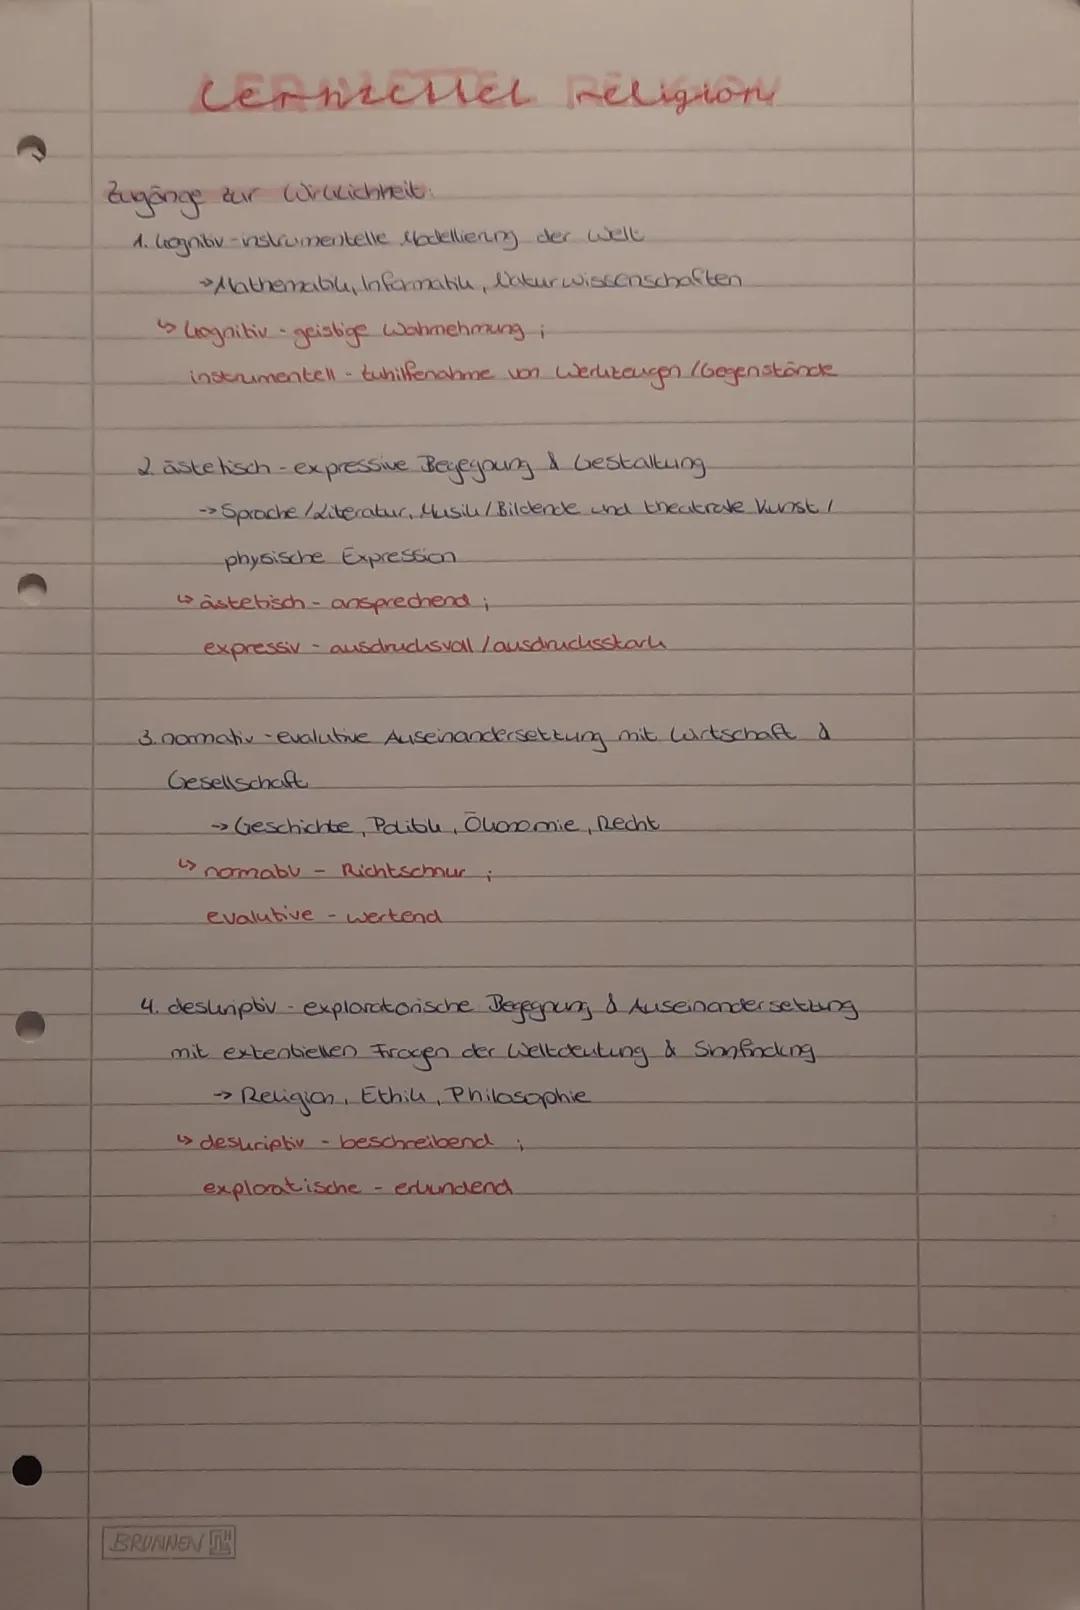 Lernzettel Religion
Zugänge zur Wirklichkeit:
1. kognitiv-instrumentelle Modellierung der Welt
→ Mathematik, Informatik, Naturwissenschaften
↳ kognitiv - geistige Wahrnehmung ;
instrumentell - zuhilfenahme von Werkzeugen /Gegenstände
2. ästetisch - expressive Begegnung & Gestaltung
→ Sprache /Literatur, Musik / Bildende und theatrale Kunst /
physische Expression
↳ ästetisch - ansprechend ;
expressiv - ausdrucksvoll /ausdrucksstark
3. normativ - evalutive Auseinandersetzung mit Wirtschaft &
Gesellschaft
→ Geschichte, Politik, Ökonomie, Recht
↳ normativ - Richtschnur ;
evalutive - wertend
4. deskriptiv - exploratorische Begegnung & Auseinandersetzung
mit extentiellen Fragen der Weltdeutung & Sinnfindung
→ Religion, Ethik, Philosophie
↳ deskriptiv - beschreibend ;
exploratische - erkundend
BRUNNEN